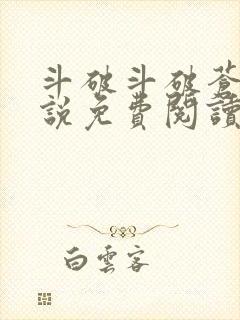 斗破斗破蒼
說免費閱讀
白雲客